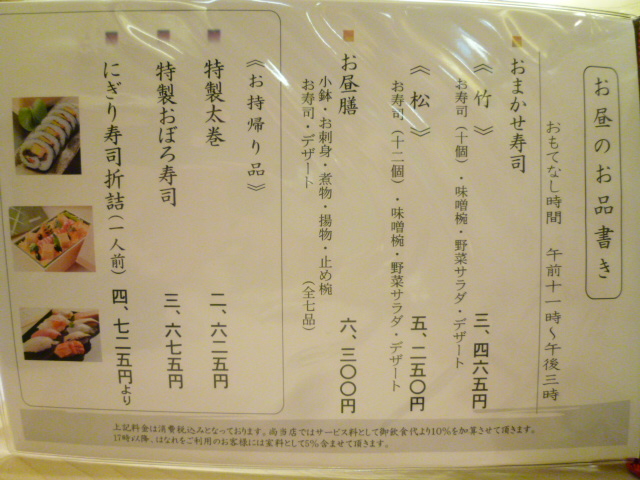 お昼のお品書き
おもてなし時間　午前十一時～午後三時
おまかせ寿司
《竹》
三、四六五円
お寿司（十個）・味噌椀・野菜サラダ・デザート
《松》
五、二五〇円
お寿司（十二個）・味噌椀・野菜サラダ・デザート
お昼膳
六、三〇〇円
小鉢・お刺身・煮物・揚物・止め椀
お寿司・デザート
（全七品）
《お持帰り品》
特製太巻
二、六二五円
特製おぼろ寿司
三、六七五円
にぎり寿司折詰（一人前）
四、七二五円より
上記料金は消費税込みとなっております。尚当店ではサービス料として御飲食代より10%を加算させて頂きます。
17時以降、はなれをご利用のお客様には室料として5%含ませて頂きます。